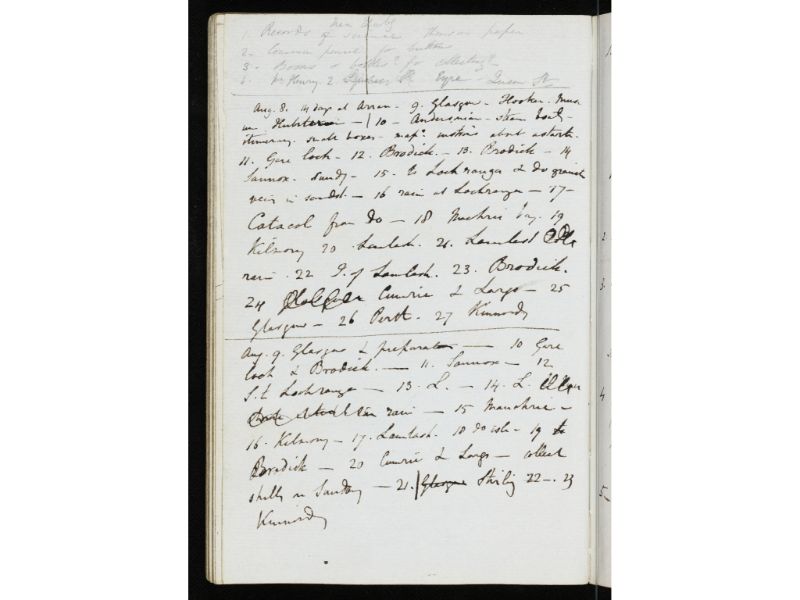 1. Records of Science Thomson paper
2. Common pencil for
3. Boxes & for collecting
4. Mr Henry 2 Eyre Queen St
Aug. 8. 14 days at Arran - 9. Glasgow - Hooker. Mus-
um - | 10 - Andersonian - Steam boats -
itinerary. small boxes - map. about
11. Gare Loch - 12. Brodick - 13. Brodick - 14
Sannox. Sunday - 15. to Loch ranza & do granite
vein in sandst. - 16 rain at Lochranza - 17 -
Catacol from do - 18 Machrie bay. 19
Kilmory 20 Lamlash. 21. Lamlash
rain. 22 I. of Lamlash. 23. Brodick.
24 Cumrie & Largs - 25
Glasgow - 26 Perth. 27 Kinnordy
Aug. 9. Glasgow & preparation - 10 Gare
loch & Brodick. - 11. Sannox - 12
S. & Lochranza - 13. L. - 14. L.
rain - 15 Mauchrie -
16. Kilmory - 17. Lamlash. 18 do isle - 19 to
Brodick - 20 Cumrie & Largs - collect
shells on Sunday - 21. | Glasgow Stirling 22 -. 23
Kinnordy